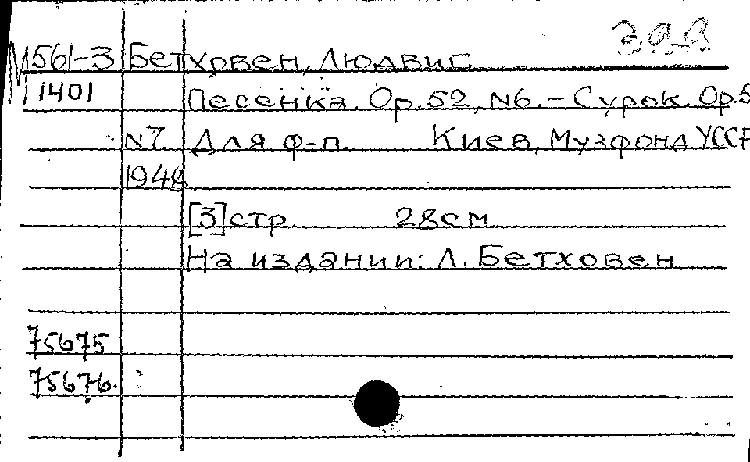 М561-3 Бетховен, Людвиг
1401 Песенка. Op. 52, N6. – Сурок. Op. 5
N7 Для ф-п. Киев, Музфонд УССР
1948
[3] стр. 28см
На издании: Л. Бетховен
75675
75676